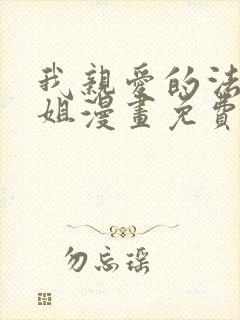 我親愛的法
姐漫畫免費
勿忘瑶